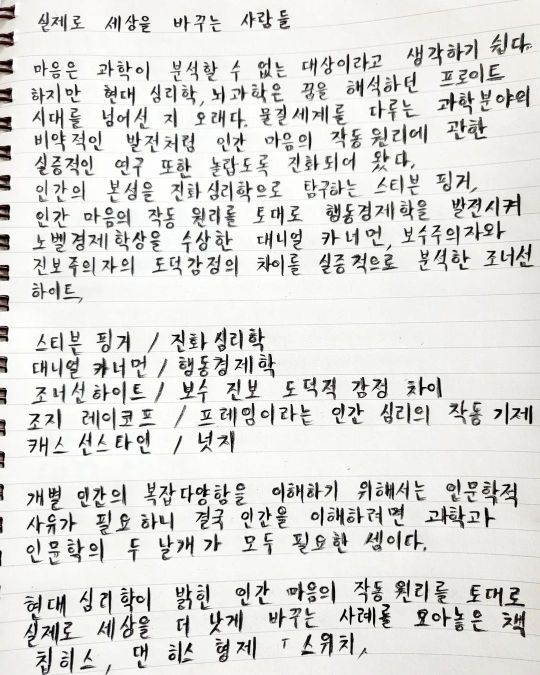 실제로 세상을 바꾸는 사람들
마음은 과학이 분석할 수 없는 대상이라고 생각하기 쉽다.
하지만 현대 심리학, 뇌과학은 꿈을 해석하던 프로이트
시대를 넘어선 지 오래다. 물질세계를 다루는 과학분야의
비약적인 발전처럼 인간 마음의 작동원리에 관한
실증적인 연구 또한 놀랍도록 진화되어 왔다.
인간의 본성을 진화심리학으로 탐구하는 스티븐 핑거,
인간 마음의 작동 원리를 토대로 행동경제학을 발전시켜
노벨경제학상을 수상한 대니얼 카너먼, 보수주의자와
진보주의자의 도덕감정의 차이를 실증적으로 분석한 조너선
하이트,
스티븐 핑거 / 진화심리학
대니얼 카너먼 / 행동경제학
조너선하이트 / 보수 진보 도덕적 감정 차이
조지 레이코프 / 프레임이라는 인간 심리의 작동기제
캐스 선스타인 / 넛지
개별 인간의 복잡다양함을 이해하기 위해서는 인문학적
사유가 필요하니 결국 인간을 이해하려면 과학과
인문학의 두 날개가 모두 필요한 셈이다.
현대 심리학이 밝힌 인간 마음의 작동 원리를 토대로
실제로 세상을 더 낫게 바꾸는 사례를 모아놓은 책
칩히스, 댄 히스 형제 「스위치,